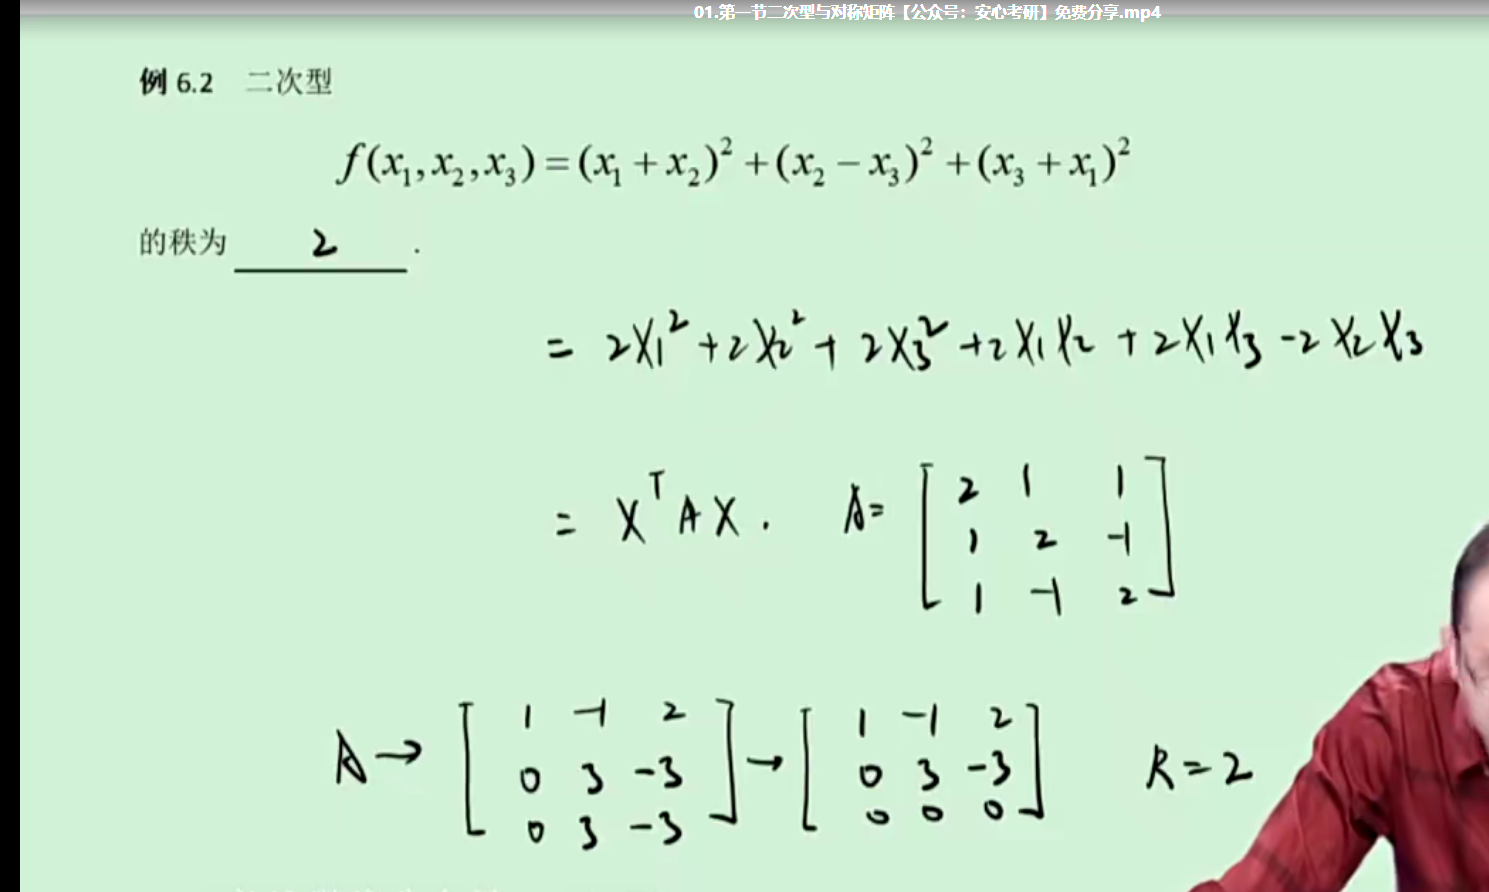 01.第一节二次型与对称矩阵【公众号：安心考研】免费分享.mp4
例 6.2 二次型
f(x₁,x₂,x₃)=(x₁+x₂)²+(x₂−x₃)²+(x₃+x₁)²
的秩为 2 .
= 2X₁²+2X₂²+2X₃²+2X₁X₂+2X₁X₃-2X₂X₃
= XᵀAX. A= [2 1 1
1 2 -1
1 -1 2]
A→ [1 -1 2 → [1 -1 2
0 3 -3 0 3 -3 R=2
0 3 -3] 0 0 0]